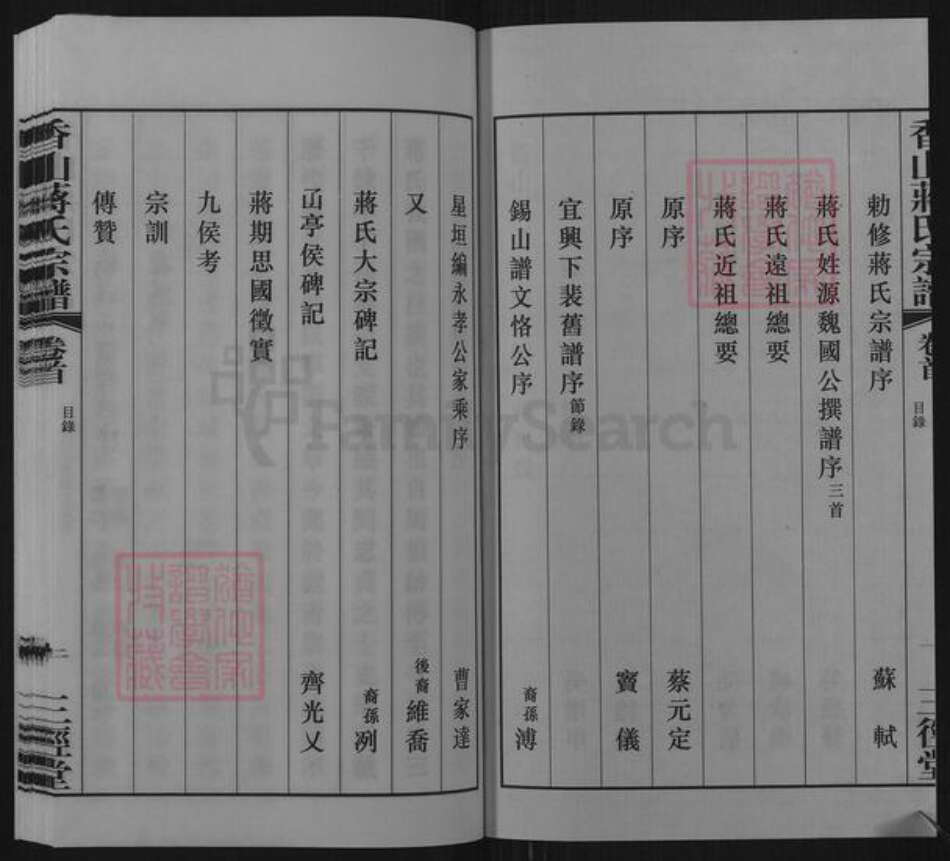 香山蔣氏宗譜 卷首 目錄 一 三徑堂
勅修蔣氏宗譜序 蘇軾
蔣氏姓源魏國公撰譜序三首
蔣氏遠祖總要
蔣氏近祖總要
原序 蔡元定
原序 竇儀
宜興下裴舊譜序節錄
錫山譜文恪公序 裔孫溥
星垣編永孝公家乘序 曹家達
又 後裔維喬
蔣氏大宗碑記 裔孫冽
㓜亭侯碑記 齊光乂
蔣期思國徵實
九侯考
宗訓
傳贊
香山蔣氏宗譜 卷首 目錄 二 三徑堂
FamilySearch